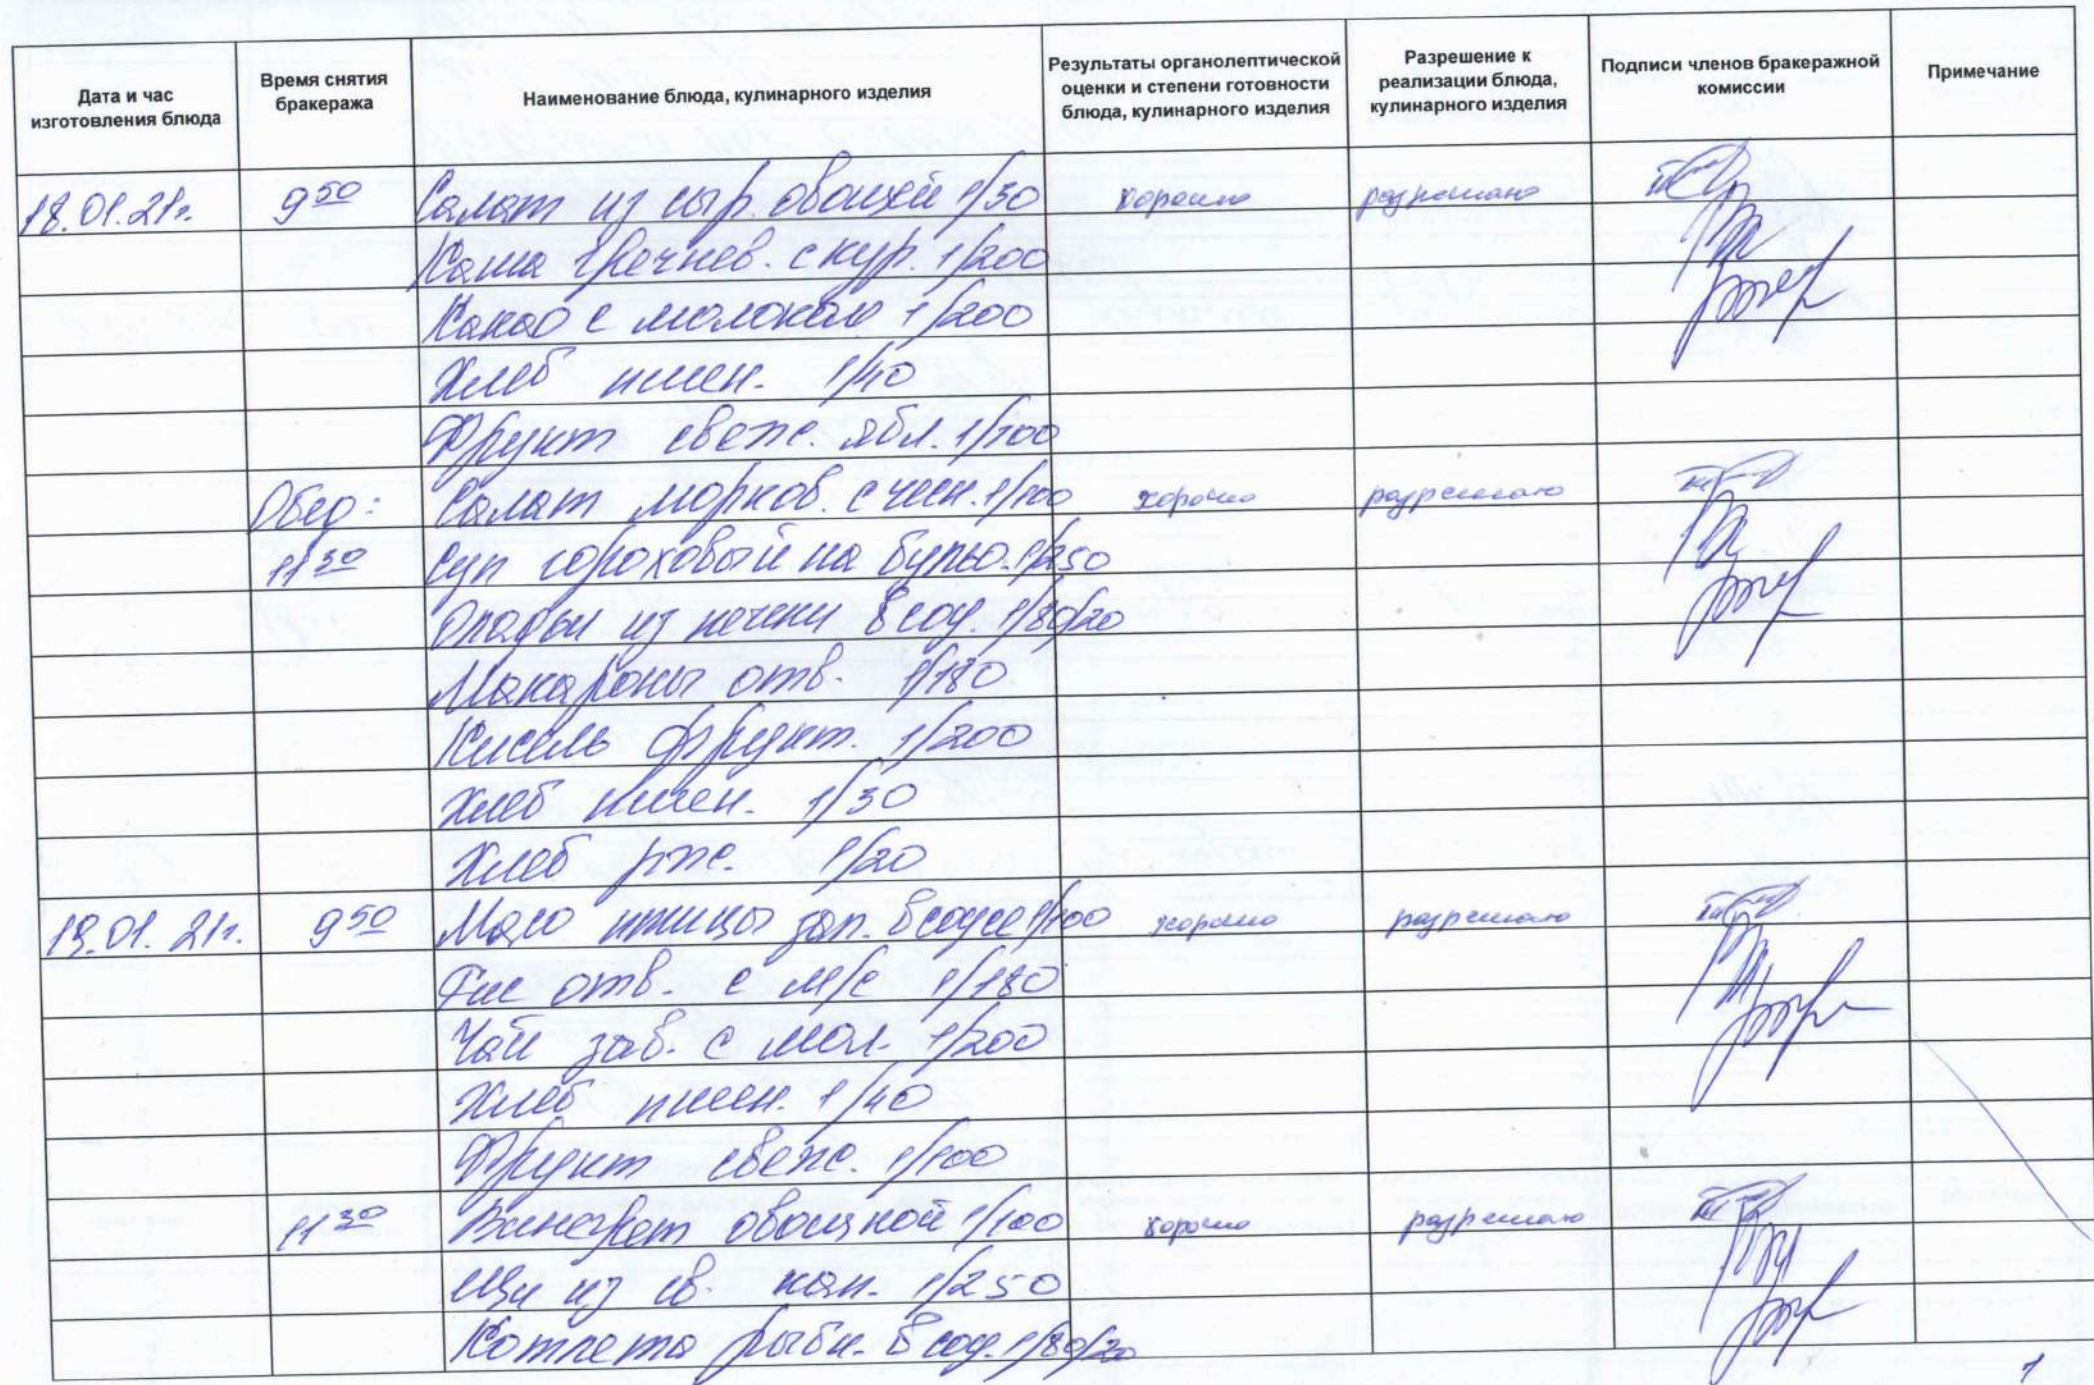 Дата и час изготовления блюда
Время снятия бракеража
Наименование блюда, кулинарного изделия
Результаты органолептической оценки и степени готовности блюда, кулинарного изделия
Разрешение к реализации блюда, кулинарного изделия
Подписи членов бракеражной комиссии
Примечание
18.01.21г. 9 50 Салат из сыр. овощей 1/30 хорошо разрешаю
Каша гречнев. с кур. 1/200
Какао с молоком 1/200
Хлеб пшен. 1/40
Фрукт свеж. ябл. 1/100
Обед: Салат морков. с чесн. 1/100 хорошо разрешаю
11 30 Суп гороховый на бульо. 1/250
Оладьи из печени в соу. 1/80/20
Макароны отв. 1/180
Кисель фрукт. 1/200
Хлеб пшен. 1/30
Хлеб рж. 1/20
19.01.21г. 9 50 Мясо птицы зап. в соусе 1/100 хорошо разрешаю
Рис отв. с м/с 1/180
Чай зав. с мол. 1/200
Хлеб пшен. 1/40
Фрукт свеж. 1/100
11 30 Винегрет овощной 1/100 хорошо разрешаю
Щи из св. кап. 1/250
Котлета рыбн. в соу. 1/80/20
1